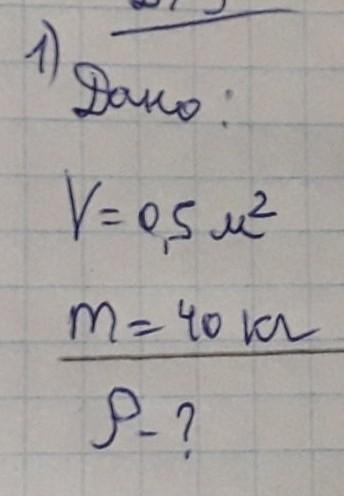 1)
Дано:
V = 0,5 м²
m = 40 кг
ρ - ?